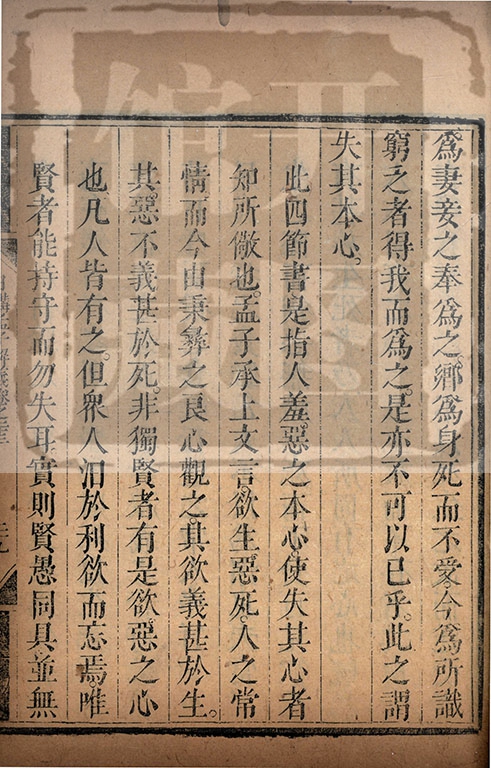 為妻妾之奉為之。鄉為身死而不愛今為所識
窮乏者得我而為之。是亦不可以已乎。此之謂
失其本心。
此四節書是指人羞惡之本心。使失其心者
知所儆也。孟子承上文言。欲生惡死。人之常
情而今由秉彝之良心觀之。其欲義甚於生。
其惡不義甚於死。非獨賢者有是欲惡之心
也凡人皆有之。但衆人汨於利欲而忘焉。唯
賢者能持守而勿失耳實則賢愚同具並無